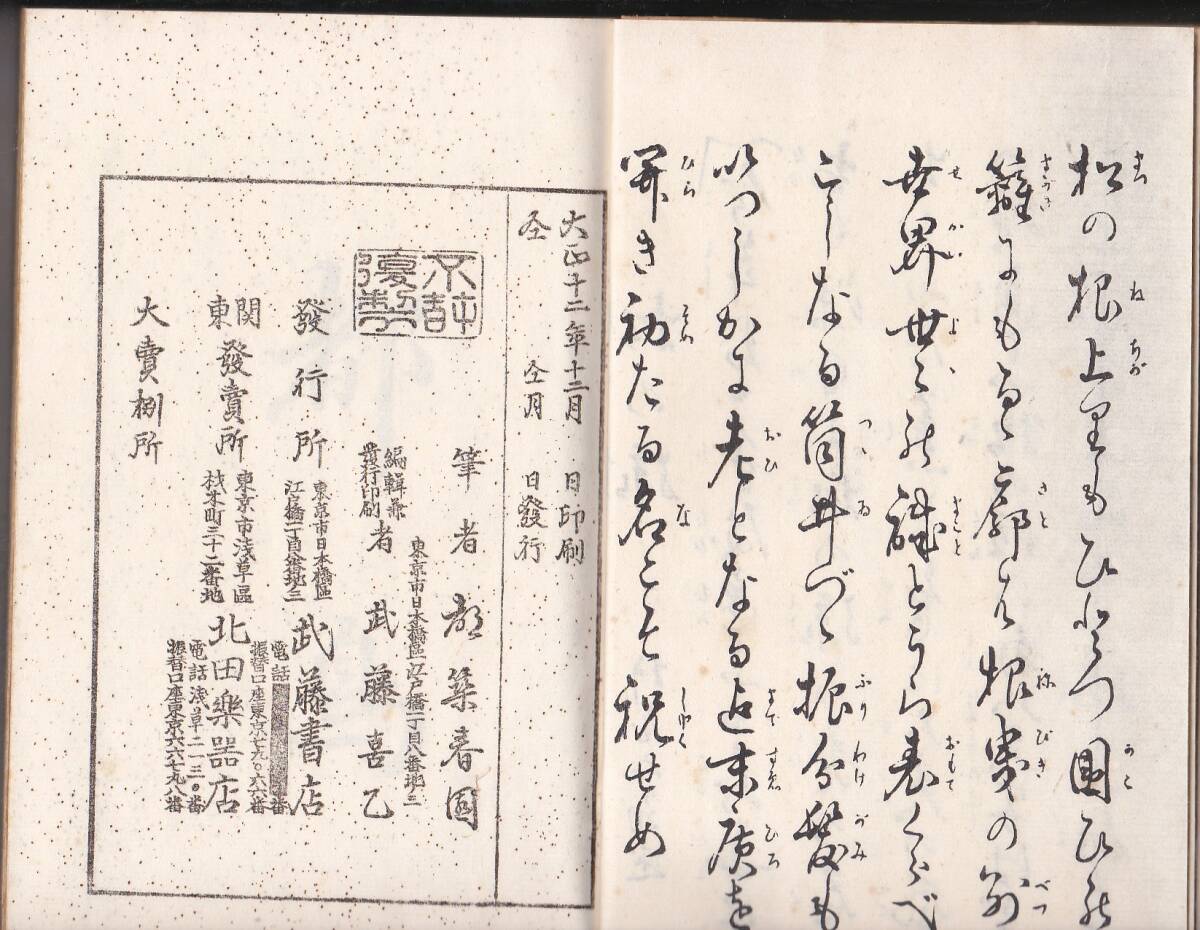 松の根上りもひとつ圍ひの
籬にもるゝ廓は根曳の別
世界世々の誠とうら表くらべ
こしなる筒井づゝ振分髪も
いつしかに老となる迄末廣を
開き初たる名こそ祝せめ
大正十二年十二月 日印刷
仝 仝月 日發行
不許
複製
筆者 都築春園
東京市日本橋區江戸橋一丁目八番地三
編輯兼
發行印刷
者 武藤喜乙
發行所
東京市日本橋區
江戸橋一丁目八番地三
武藤書店
電話 番
振替口座東京七九〇六六番
関東
發賣所
東京市浅草區
材木町三十二番地
北田樂器店
電話浅草二一三〇番
振替口座東京六六七九八番
大賣捌所